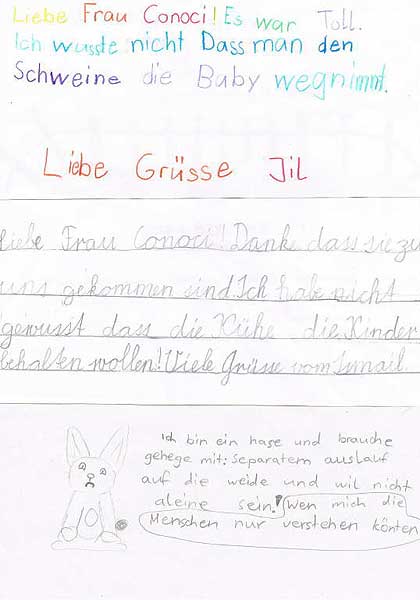 Liebe Frau Conoci! Es war Toll.
Ich wusste nicht Dass man den
Schweine die Baby wegnimmt.
Liebe Grüsse Jil
Liebe Frau Conoci! Danke dass sie zu
uns gekommen sind. Ich habe nicht
gewusst dass die Kühe die Kinder
behalten wollen! Viele Grüsse vom Ismail.
Ich bin ein hase und brauche
gehege mit: Separatem auslauf
auf die weide und wil nicht
aleine sein! Wen mich die
Menschen nur verstehen könten